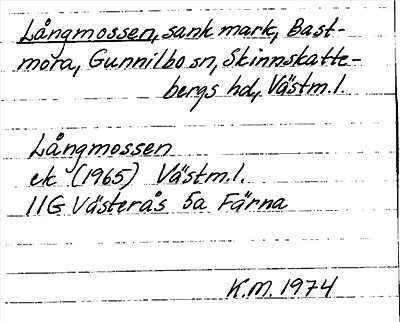 Långmossen, sank mark, Bast-
mora, Gunnilbo sn, Skinnskatte-
bergs hd, Västm.l.
Långmossen
ek (1965) Västm.l.
11G Västerås 5a Färna
K.M. 1974